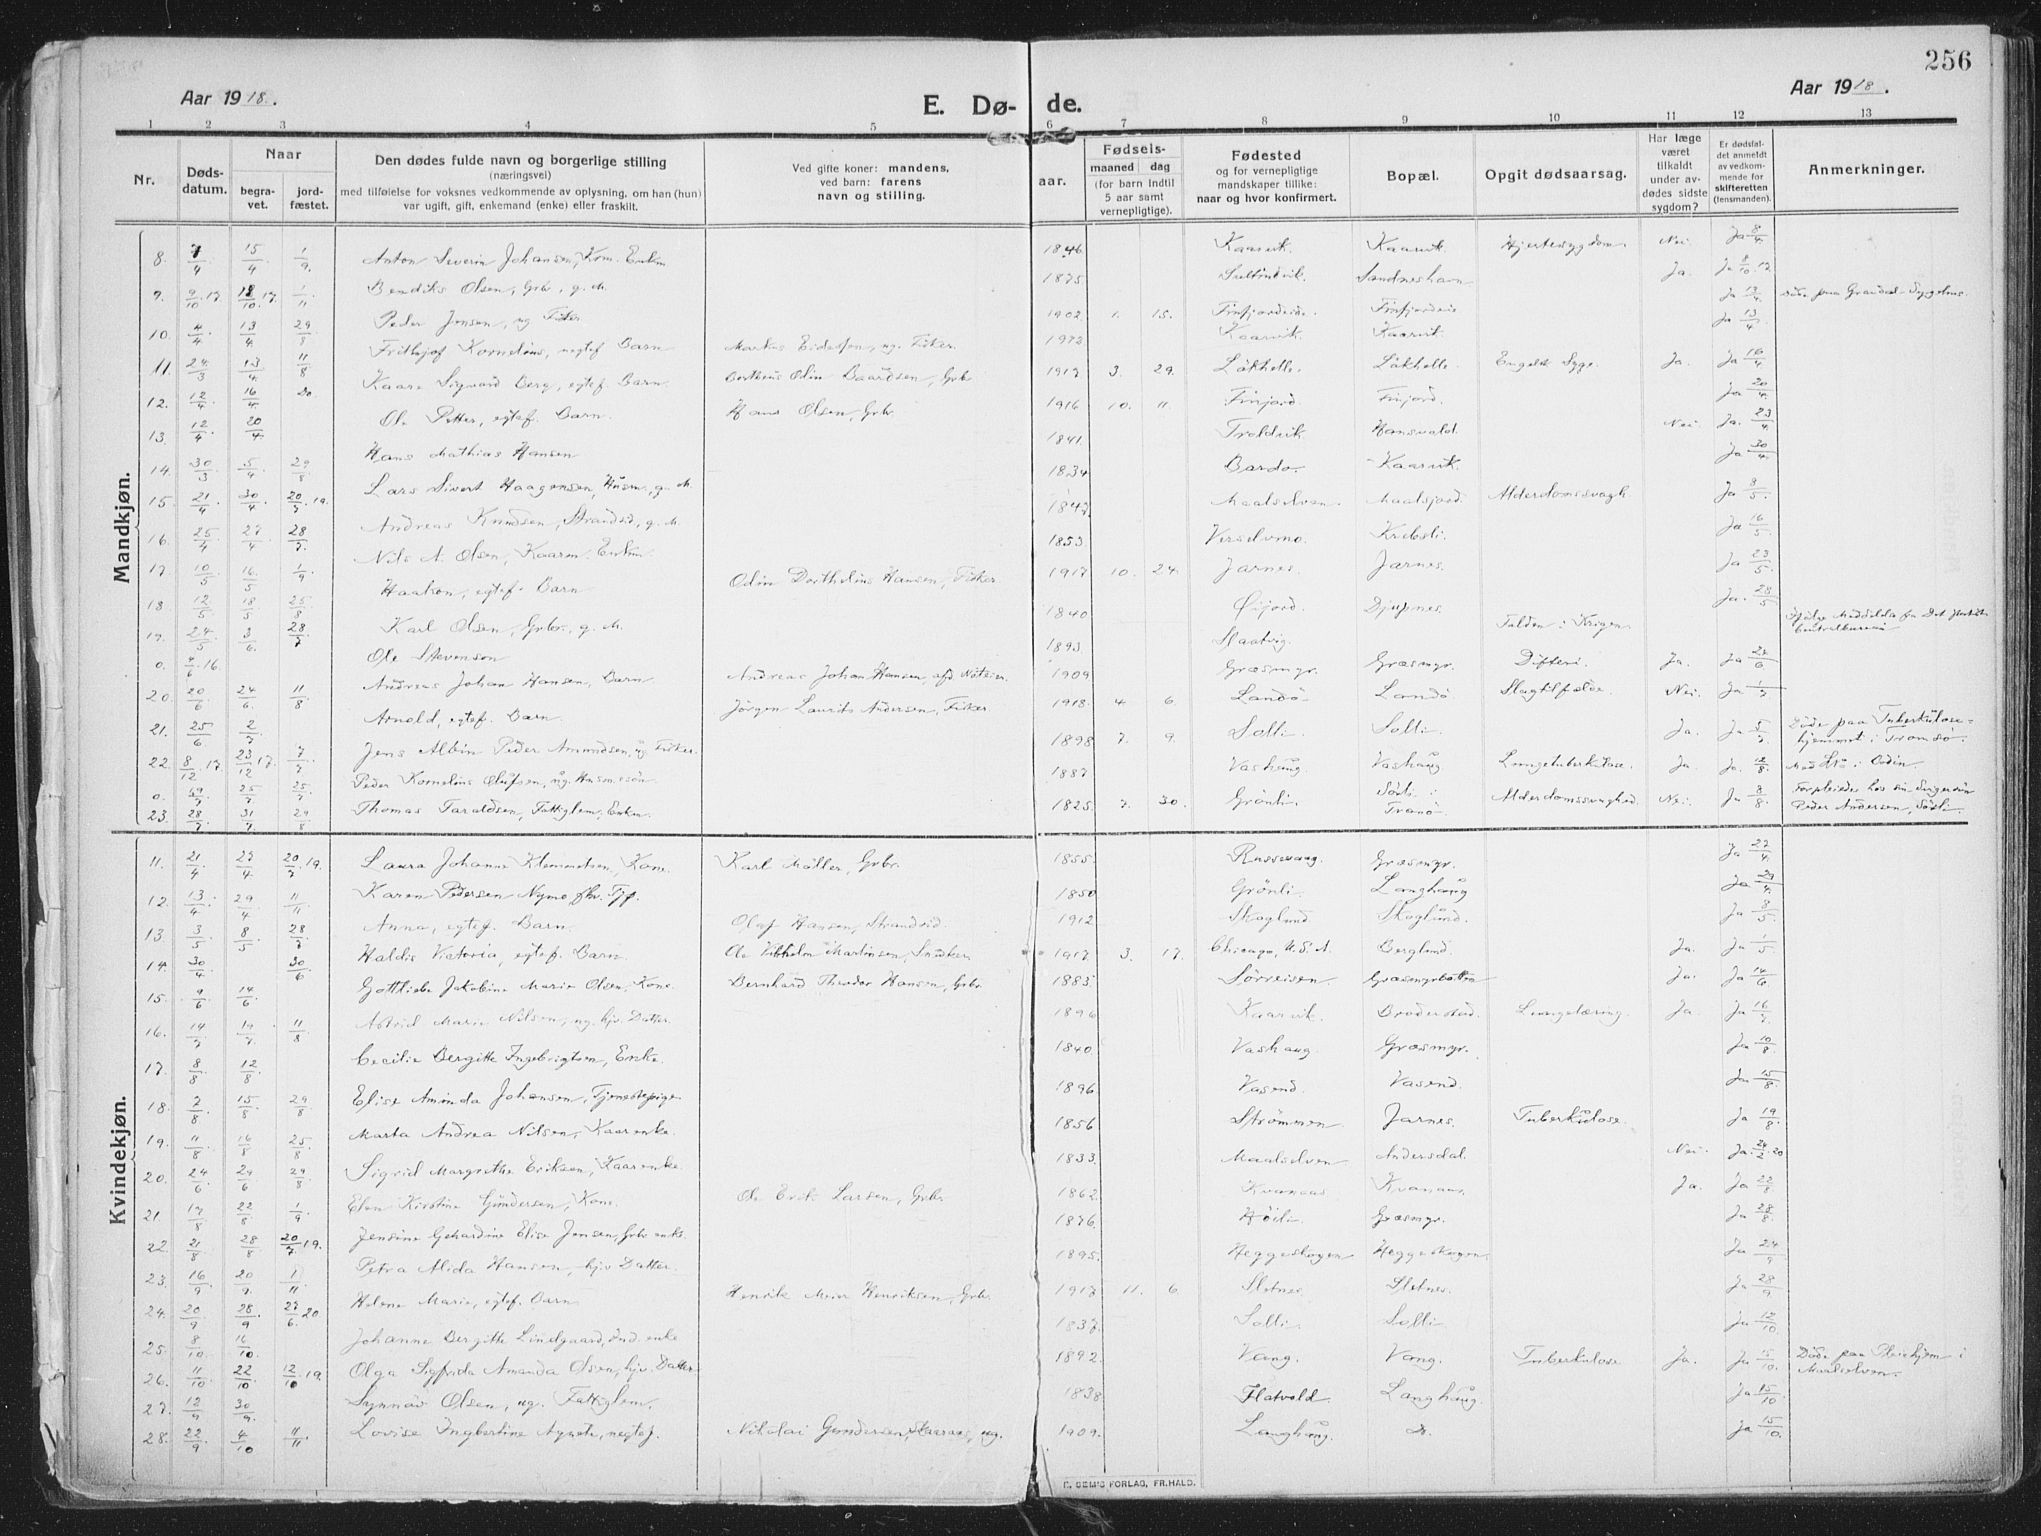 256
Aar 1918.
E. Dø- de.
Aar 1918.
1 2 3 4 5 6 7 8 9 10 11 12 13
Nr.
Døds-datum.
Naar
begra-vet.
jord-fæstet.
Den dødes fulde navn og borgerlige stilling
(næringsvei)
med tilføielse for voksnes vedkommende av oplysning, om han (hun)
var ugift, gift, enkemand (enke) eller fraskilt.
Ved gifte koner: mandens,
ved barn: farens
navn og stilling.
Fødsels-
aar.
maaned dag
(for barn indtil
5 aar samt
vernepligtige).
Fødested
og for vernepligtige
mandskaper tillike:
naar og hvor konfirmert.
Bopæl.
Opgit dødsaarsag.
Har læge
været
tilkaldt
under av-
dødes sidste
sygdom?
Er dødsfal-
det anmeldt
av vedkom-
mende for
skifteretten
(lensmanden).
Anmerkninger.
Mandkjøn.
8. 7/4 15/4 1/9 Anton Severin Johansen, Kom. Enkm. 1846 Kaarvik. Kaarvik. Hjertesygdom. Nei. Ja 8/4
9. 9/10.17. 18/10.17. 1/11 Bendiks Olsen, Grbr, g. M. 1875 Sandneshavn Ja. Ja 8/10.17.
10. 4/4 13/4 29/8 Peder Jensen, ug Fisker 1902 1. 15. Finfjordeide. Finfjordeide Ja 13/4
11. 24/3 13/4 11/8 Fritthjof Kornelius, uegtef Barn Markus Edissen, ug. Fisker. Kaarvik Kaarvik. Ja 13/4
12. 12/4 16/4 Do. Kaare Sigvard Berg, egtef. Barn. Bertheus Odin Baardsen, Grbr 1917 3. 29. Låkhelle. Låkhelle. Engelsk Syge. Ja. Ja 16/4
13. 12/4 20/4 Ole Petter, egtef. Barn. Hans Olsen, Grbr. 1916 10. 11. Finjord. Finjord. Ja 20/4
14. 30/3 5/4 29/8 Hans Mathias Hansen 1841. Troldvik Hansvold. Nei Ja. 23/4
15. 21/4 30/4 20/7.19. Lars Sivert Haagensen, Husm, g. M. 1834 Bardo. Kaarvik. Ja 30/4
16. 25/4 27/4 28/7 Andreas Knudsen, Strandsid, g. M. 1847. Maalselven Maalsjord. Alderdomssvagh. Ja 8/5.
17. 10/5 16/5 1/9. Nils A. Olsen, Kaarem. Enkm. 1853 Krebsli. Ja 16/5.
18. 12/5 18/5 25/8 Haakon, egtef. Barn Odin Dorthelius Hansen, Fisker 1917 10. 24. Jarnes. Jarnes. Ja 23/5.
19. 24/5 3/6. 28/7 Karl Olsen, Grbr., g. M. 1840 Øijord. Djupnes. Ja. 28/5
0. 4/6.16. Ole Stevenson 1893. Slaatvig. Falden i Krigen.
20. 20/6 24/6. 11/8 Andreas Johan Hansen, Barn Andreas Johan Hansen, afd. 1909 Græsmyr. Græsmyr. Difteri. Ja. Ja 24/6
21. 25/6 2/7. Arnold, egtef. Barn. Jörgen Laurits Andersen, Fisker. 1918. 4 6. Landö. Landö. Slagtilfælde. Nei. Ja 1/7
22. 8/12.17. 23/12.17. 7/7 Jens Albin Peder Amundsen, ug Fisker. 1898 7. 9 Solli. Solli. Ja. Ja 5/7 Döde paa Tuberkulose-
hjemmet i Tromsö.
0. 25/7. 25/7 Peder Kornelius Olufsen, ug. Husmssön. 1887 Vashaug. Vashaug Lungetuberkulose. Ja. Ja. 12/8.
23. 28/7 31/7. 29/8 Thomas Taraldsen, Fattiglem, Enkm. 1825. 7. 30. Grönli. Sörli i
Tranö. Alderdomssvaghed. Nei. Ja 8/8. Forpleiedes hos sin Svigersön
Peder Andersen, Sörli.
Kvindekjøn.
11. 21/4 27/4 20/7.19. Laura Johanne Klemmetsen, Kone. Karl Möller, Grbr. 1855. Russevaag. Græsmyr. Ja 27/4.
12. 13/4. 29/4 11/11 Karen Pedersen Nymo, fhv. Tjp. 1850 Grönli. Langhaug Ja 29/4.
13. 3/5 8/5. 28/7 Anna, egtef. Barn. Olaf Hansen, Strandsid 1912 Skoglund Skoglund. Ja 8/5.
14. 30/4. 30/6 Haldis Victoria, egtef. Barn. Ole Vilhelm Martinsen, Snedker 1917 3. 17. Chicago, U. S. A. Berglund. Ja. Ja 1/5
15. 9/6 14/6. Gottliebe Jakobine Marie Olsen, Kone. Bernhard Theodor Hansen, Grbr 1883. Sörreisen Græsmyrbotten Ja. Ja 14/6
16. 14/7 19/7. 11/8 Astrid Marie Nilsen, ug. hjv. Datter. 1896 Kaarvik. Broderstad. Lungelæring. Ja Ja 16/7.
17. 8/8 12/8 Cecilie Bergitte Ingebrigtsen, Enke. 1840. Vashaug. Græsmyr. Ja 10/8
18. 7/8. 15/8. 29/8 Elise Aminda Johansen, Tjenestepige 1896. Vasend. Vasend. Ja 15/8.
19. 11/8. 16/8 25/8. Marta Andrea Nilsen, Kaarenke. 1856 Strömmen Jarnes. Tuberkulose. Ja 19/8.
20. 24/6 29/6 29/8 Sigrid Margrethe Eriksen, Kaarenke. 1833. Maalselven Andersdal. Nei. Ja. 24/2.20
21. 17/8 22/8. 1/9. Elen Kirstine Gundersen, Kone. Ole Erik Larsen, Grbr 1862. Kvanaas Kvanaas. Ja. Ja 22/8
22. 21/8 28/8 20/7.19. Jensine Gehardine Elise Jensen, Grbr enke. 1876. Höili. Græsmyr. Ja 28/8.
23. 16/9 20/9. 1/11. Petra Alida Hansen, hjv. Datter. 1895. Heggeskogen Heggeskogen. Ja 24/9
24. 20/9 28/9 27/6.20. Helene Marie, egtef. Barn Henrik Meier Henriksen, Grbr. 1917 11. 6 Sletnes. Sletnes. Ja 28/9
25. 8/10. 16/10. Johanne Bergitte Lindgaard, Ind. enke 1837. Solli. Solli. Ja 12/10
26. 11/10. 22/10. 12/10.19. Olga Sigfrida Amanda Olsen, hjv. Datter 1892. Vang. Vang. Tuberkulose Ja. Ja 15/10. Döde paa Pleiehjem i
Maalselven.
27. 12/9 30/9. Synnöv Olsen, ug. Fattiglem. 1838 Flatvold Langhaug. Ja 15/10
28. 22/9 4/10 11/11 Lovise Ingbertine Agnete, uegtef. Nikolai Gundersen, ug. 1909. Langhaug. Do. Ja 15/10.
F. BEM'S FORLAG, FR.HALD.